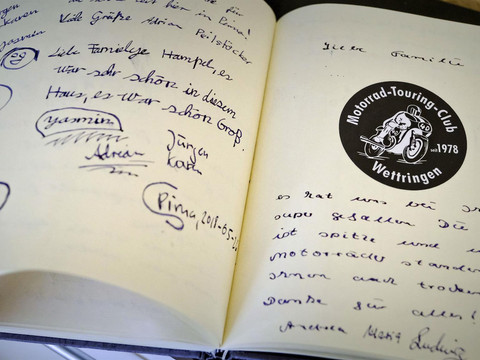 Karen
Jasmin
Viele Grüße Adrian Peilstöcker
Liebe Familje Hampel, es
war sehr schön in diesem
Haus, es war schön Groß.
yasmin
Adrian
Jürgen
Karen
Pirna, 2018-05-
Liebe Familie
Motorrad-Touring-Club
est. 1978
Wettringen
es hat uns bei
super gefallen Die
ist spitze und
Motorräder standen
ihnen auch trocken
Danke für alles!
Andrea Maria Ludwig